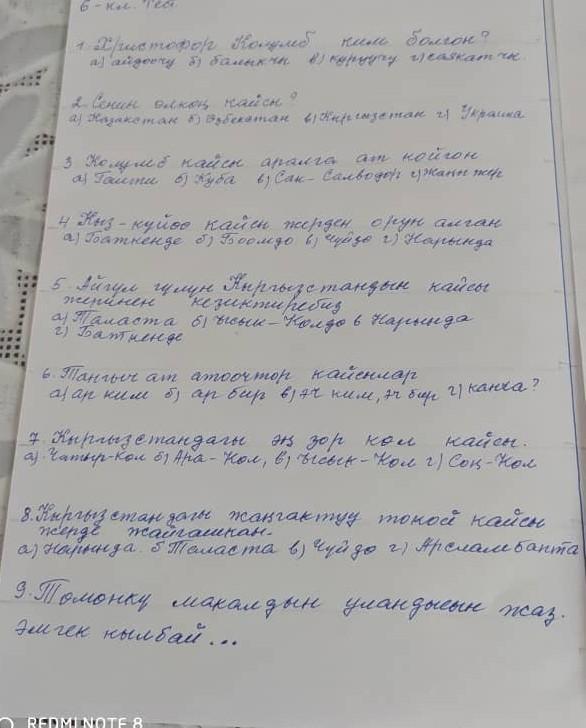 6-кл. Тест
1. Христофор Колумб ким болгон?
а) айдоочу б) балыкчы в) куруучу г) саякатчы.
2. Сенин өлкөң кайсы?
а) Казакстан б) Өзбекстан в) Кыргызстан г) Украина
3 Колумб кайсы аралга ат койгон
а) Гаити б) Куба в) Сан-Салводор г) жаңы жер
4 Кыз-күйөө кайсы жерден орун алган
а) Баткенде б) Боомдо в) Чүйдө г) Нарында
5. Айгүл гүлүн Кыргызстандын кайсы
жеринен кезиктиребиз
а) Таласта б) Ысык-Көлдө в Нарында
г) Баткенде
6. Тангыч ат атоочтор кайсылар
а) ар ким б) ар бир в) эч ким, эч бир г) канча?
7. Кыргызстандагы эң зор көл кайсы.
а) Чатыр-көл б) Ара-Көл, в) Ысык-Көл г) Соң-Көл
8. Кыргызстандагы жаңгактуу токой кайсы
жерде жайгашкан.
а) Нарында. б Таласта в) Чүйдө г) Арсламбапта
9. Төмөнкү макалдын уландысын жаз.
Эмгек кылбай...
REDMI NOTE 8